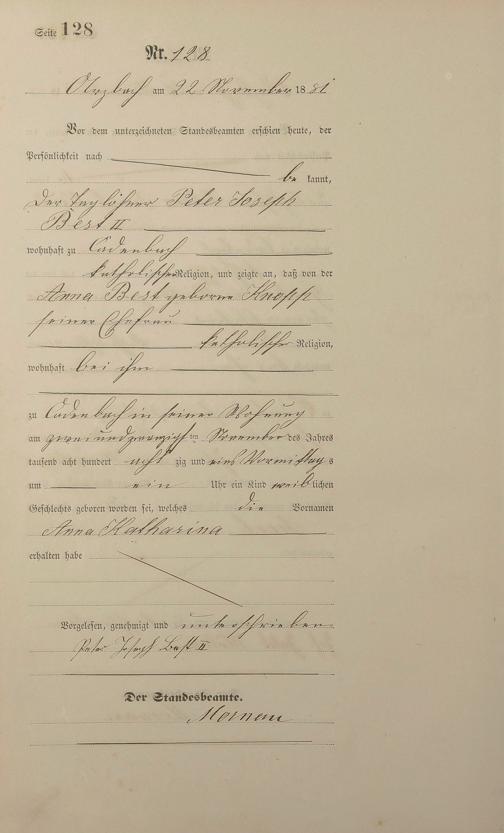 Seite 128
Nr. 128
Arzbach am 22 November 1881
Vor dem unterzeichneten Standesbeamten erschien heute, der
Persönlichkeit nach
be kannt,
der Taglöhner Peter Joseph
Best II
wohnhaft zu Cadenbach
katholischer Religion, und zeigte an, daß von der
Anna Best geborne Knopp
seiner Ehefrau
katholischer Religion,
wohnhaft bei ihm
zu Cadenbach in seiner Wohnung
am zweiundzwanzigsten November des Jahres
tausend acht hundert achtzig und eins Vormittags
um ein Uhr ein Kind weiblichen
Geschlechts geboren worden sei, welches die Vornamen
Anna Katharina
erhalten habe
Vorgelesen, genehmigt und unterschrieben
Peter Joseph Best II
Der Standesbeamte.